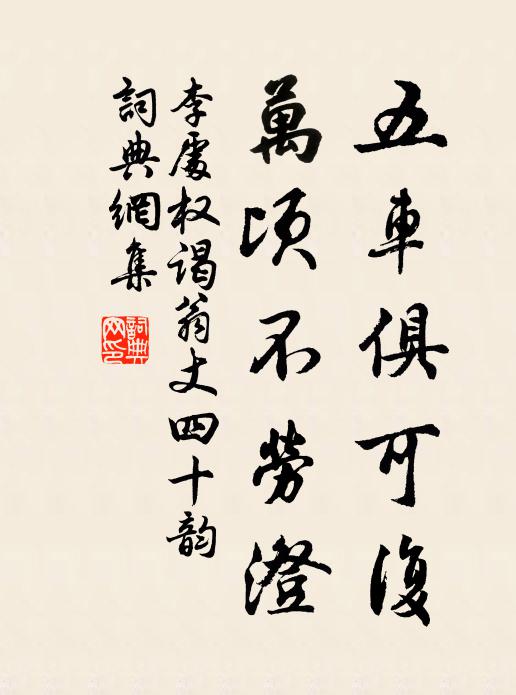 五車俱可復
萬頃不勞澄
李處权谒翁丈四十韵
詞典網集
詞典网印